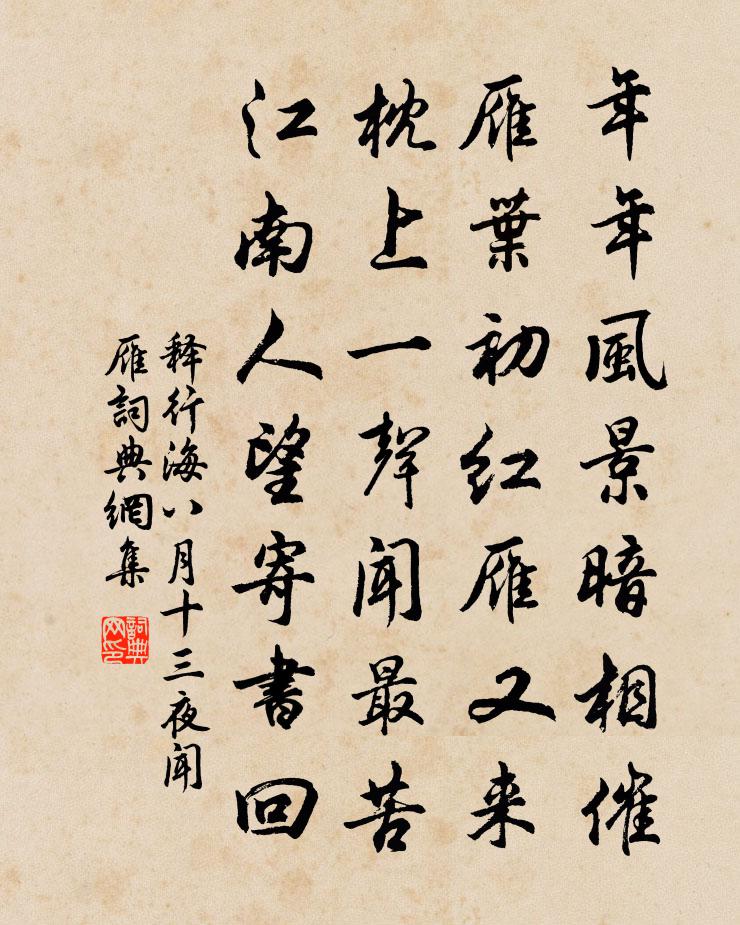 年年風景暗相催
雁葉初紅雁又来
枕上一聲聞最苦
江南人望寄書回
释行海八月十三夜聞
雁詞典網集
詞典
网印